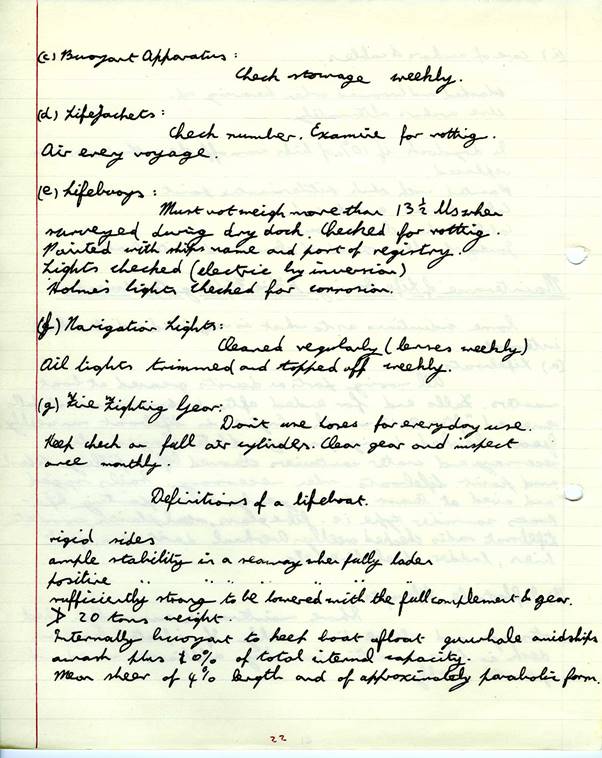 (c) Buoyant Apparatus:
Check stowage weekly.
(d) Lifejackets:
Check number. Examine for rotting.
Air every voyage.
(e) Lifebuoys:
Must not weigh more than 13½ lbs when
surveyed during dry dock. Checked for rotting.
Painted with ships name and port of registry.
Lights checked (electric by inversion)
Holmes lights checked for corrosion.
(f) Navigation Lights:
Cleaned regularly (lenses weekly)
Oil lights trimmed and topped off weekly.
(g) Fire Fighting Gear:
Don't use hoses for everyday use.
Keep check on full air cylinders. Clean gear and inspect
once monthly.
Definitions of a lifeboat.
rigid sides
ample stability in a seaway when fully laden
positive " " " " " "
sufficiently strong to be lowered with the full complement & gear.
≯ 20 tons weight.
Internally buoyant to keep boat afloat gunwhale amidships
awash plus 10% of total internal capacity.
Mean sheer of 4% length and of approximately parabolic form.
22